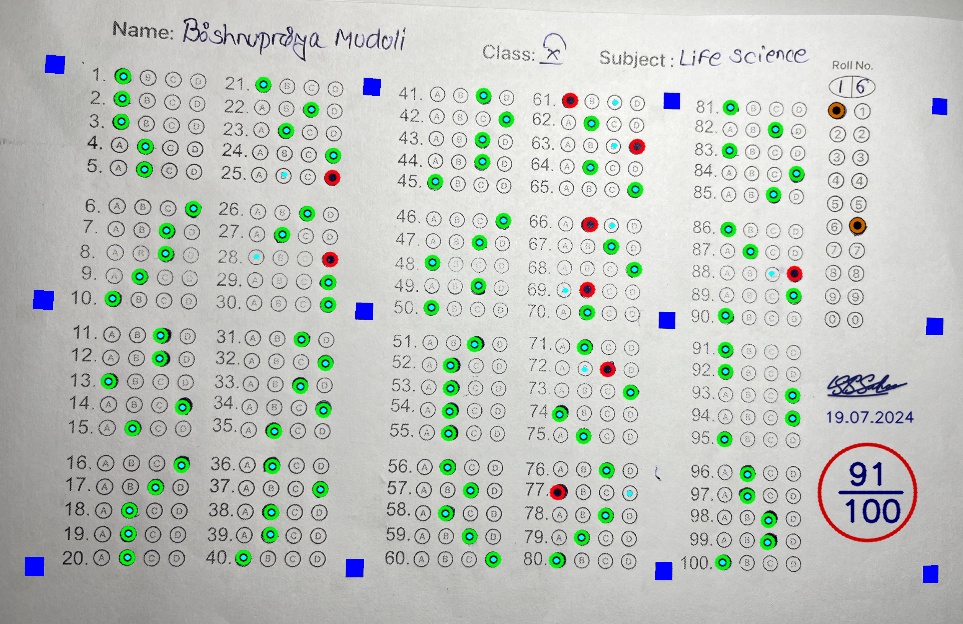 Name: Bishnupriya Muduli
Class: X
Subject: Life science
Roll No.
1 6
1. B C D
2. B C D
3. B C D
4. A C D
5. A C D
6. A B C
7. A B D
8. A B D
9. A C D
10. B C D
11. A B D
12. A B D
13. B C D
14. A B C
15. A C D
16. A B C
17. A B D
18. A C D
19. A C D
20. A C D
21. B C D
22. A B D
23. A C D
24. A B C
25. A C
26. A B D
27. A C D
28. B C
29. A B C
30. A B C
31. A B D
32. A B C
33. A B D
34. A B C
35. A C D
36. A C D
37. A B C
38. A C D
39. A C D
40. B C D
41. A B D
42. A B C
43. A B D
44. A B D
45. B C D
46. A B C
47. A B D
48. B C D
49. A B D
50. B C D
51. A B D
52. A C D
53. A C D
54. A C D
55. A C D
56. A C D
57. A B D
58. A C D
59. A B D
60. A B C
61. B D
62. A C D
63. A B
64. A C D
65. A B C
66. A D
67. A B D
68. A B C
69. C D
70. A C D
71. A C D
72. A D
73. A B C
74. B C D
75. A C D
76. A B D
77. B C
78. A B D
79. A C D
80. B C D
81. B C D
82. A B D
83. B C D
84. A B C
85. A B D
86. B C D
87. A C D
88. A B
89. A B C
90. B C D
91. B C D
92. B C D
93. A B C
94. A B C
95. B C D
96. A C D
97. A C D
98. A B D
99. A B D
100. B C D
1
2 2
3 3
4 4
5 5
6
7 7
8 8
9 9
0 0
19.07.2024
91
100